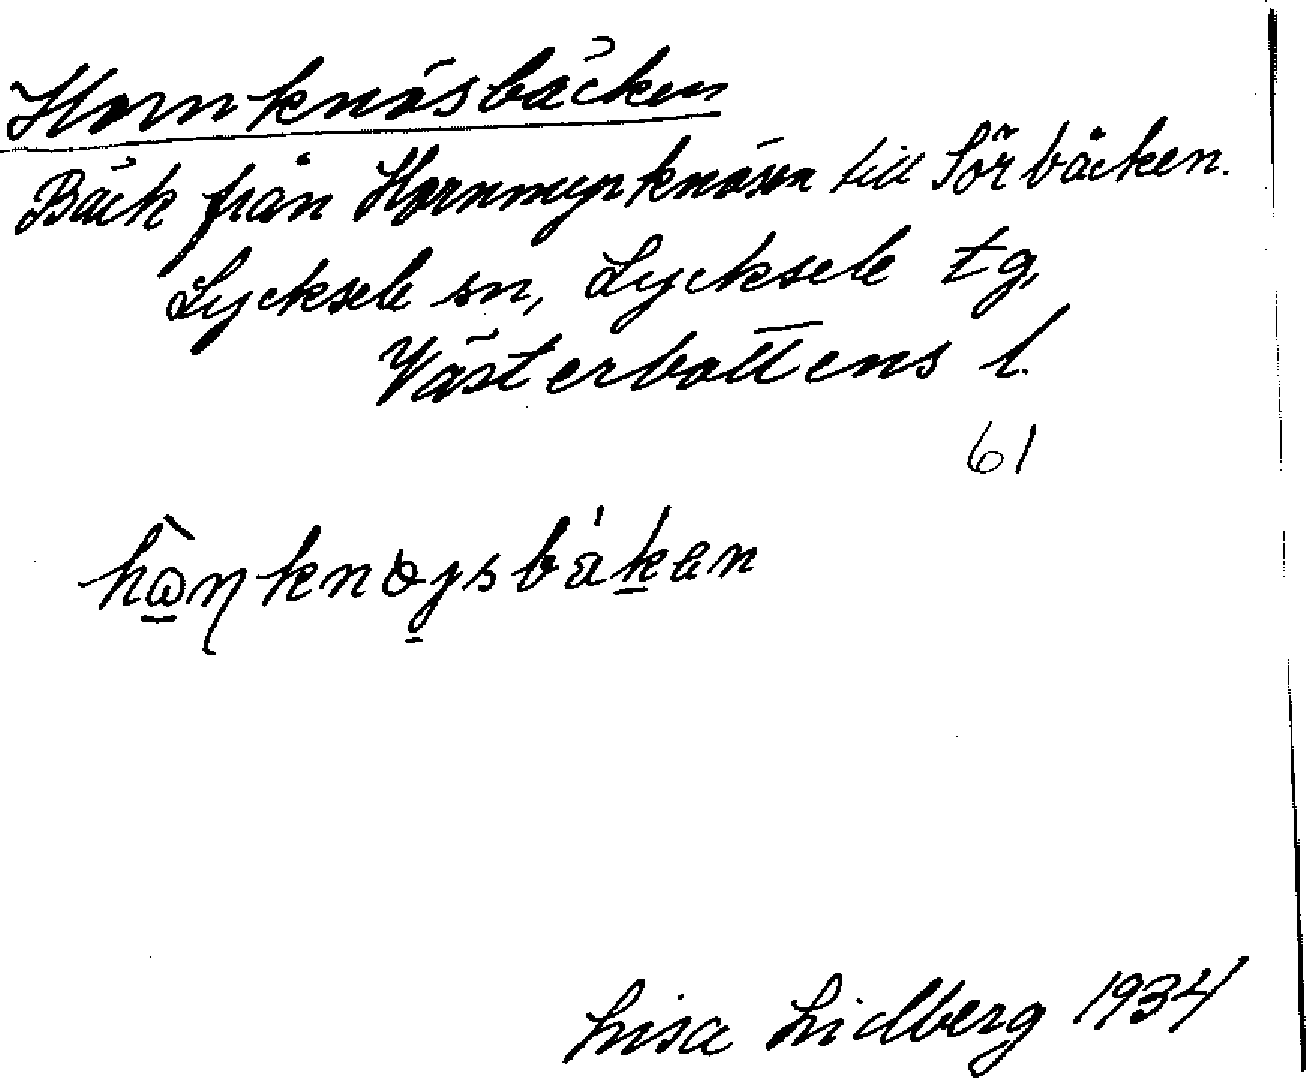 Hornknösbäcken
Bäck från Hornmyrknösen till Sörbäcken.
Lycksele sn, Lycksele tg,
Västerbottens l.
61
Lisa Lidberg 1934